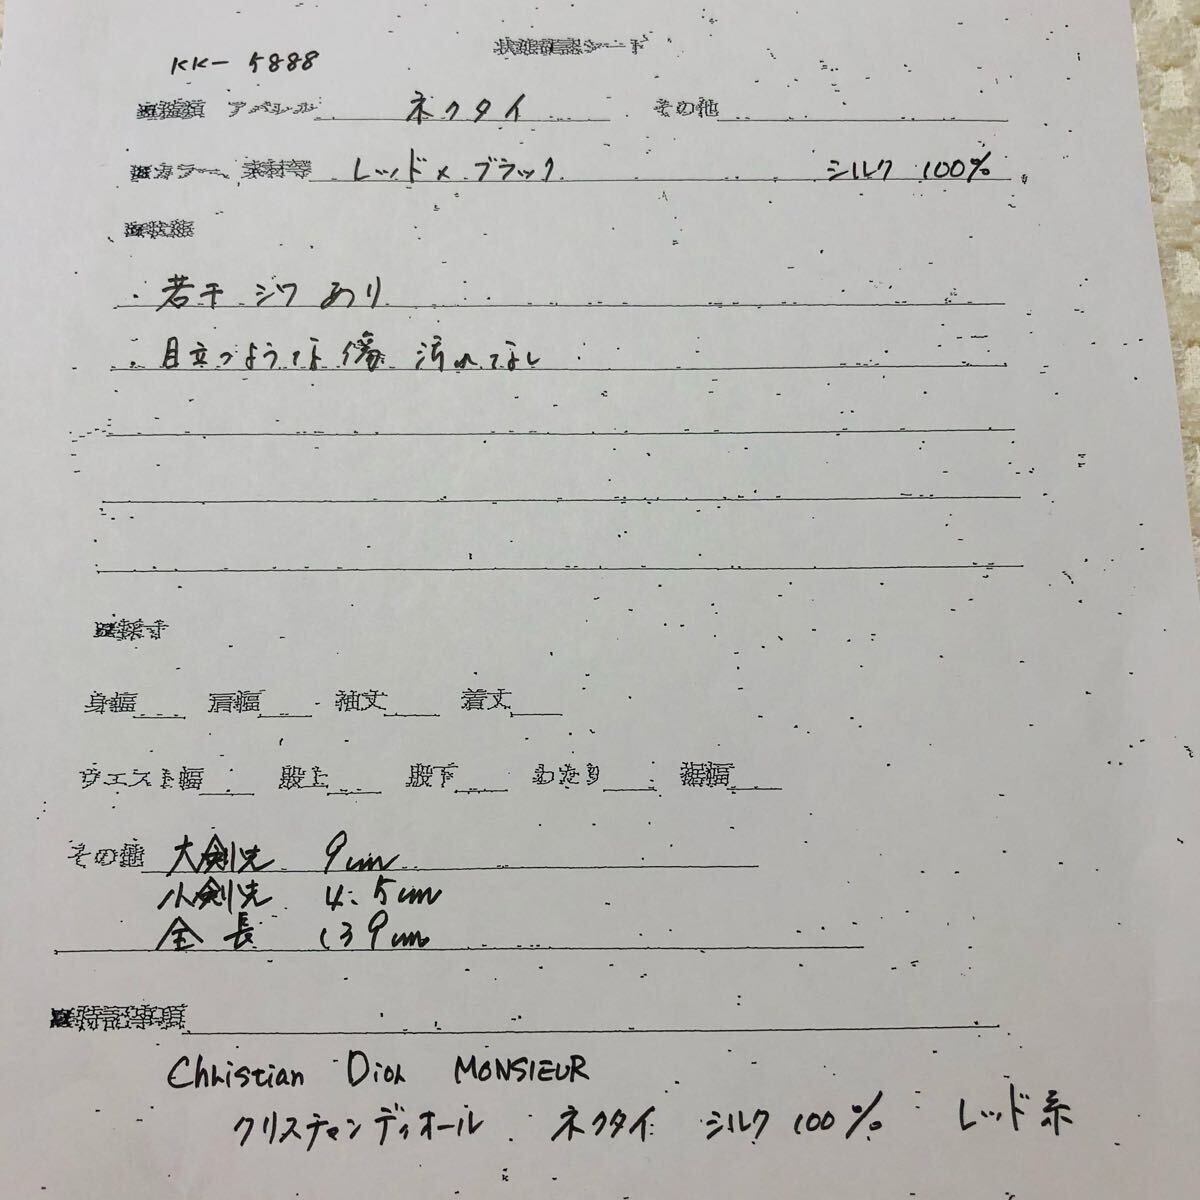 状態確認シート
KK- 5888
種類 アパレル ネクタイ その他
カラー、素材等 レッド×ブラック シルク 100%
状態
・若干 シワ あり
・目立つような傷 汚れなし
採寸
身幅 肩幅 袖丈 着丈
ウエスト幅 股上 股下 わたり 裾幅
その他 大剣先 9cm
小剣先 4.5cm
全長 139cm
特記事項
Christian Dior MONSIEUR
クリスチャンディオール ネクタイ シルク 100% レッド系